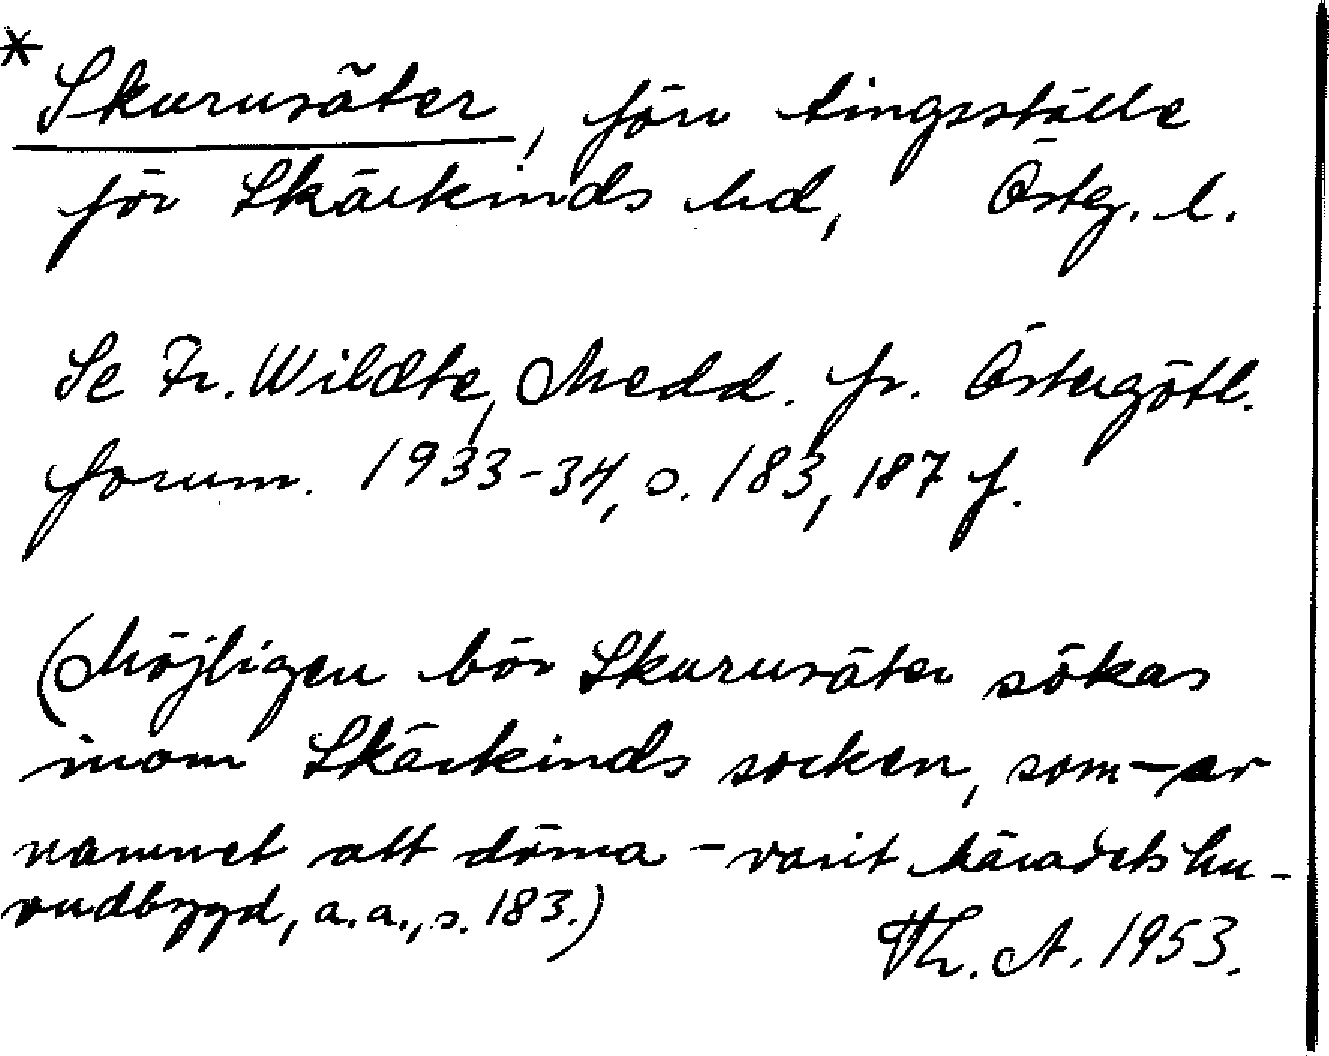 * Skurusäter, förr tingsställe
för Skärkinds hd, Östg. l.
Se Fr. Wildte, Medd. fr. Östergötl.
fornm. 1933-34, s. 183, 187 f.
(Möjligen bör Skurusäter sökas
inom Skärkinds socken, som – av
namnet att döma – varit häradets hu-
vudbygd, a.a., s. 183.)
Th. A. 1953.